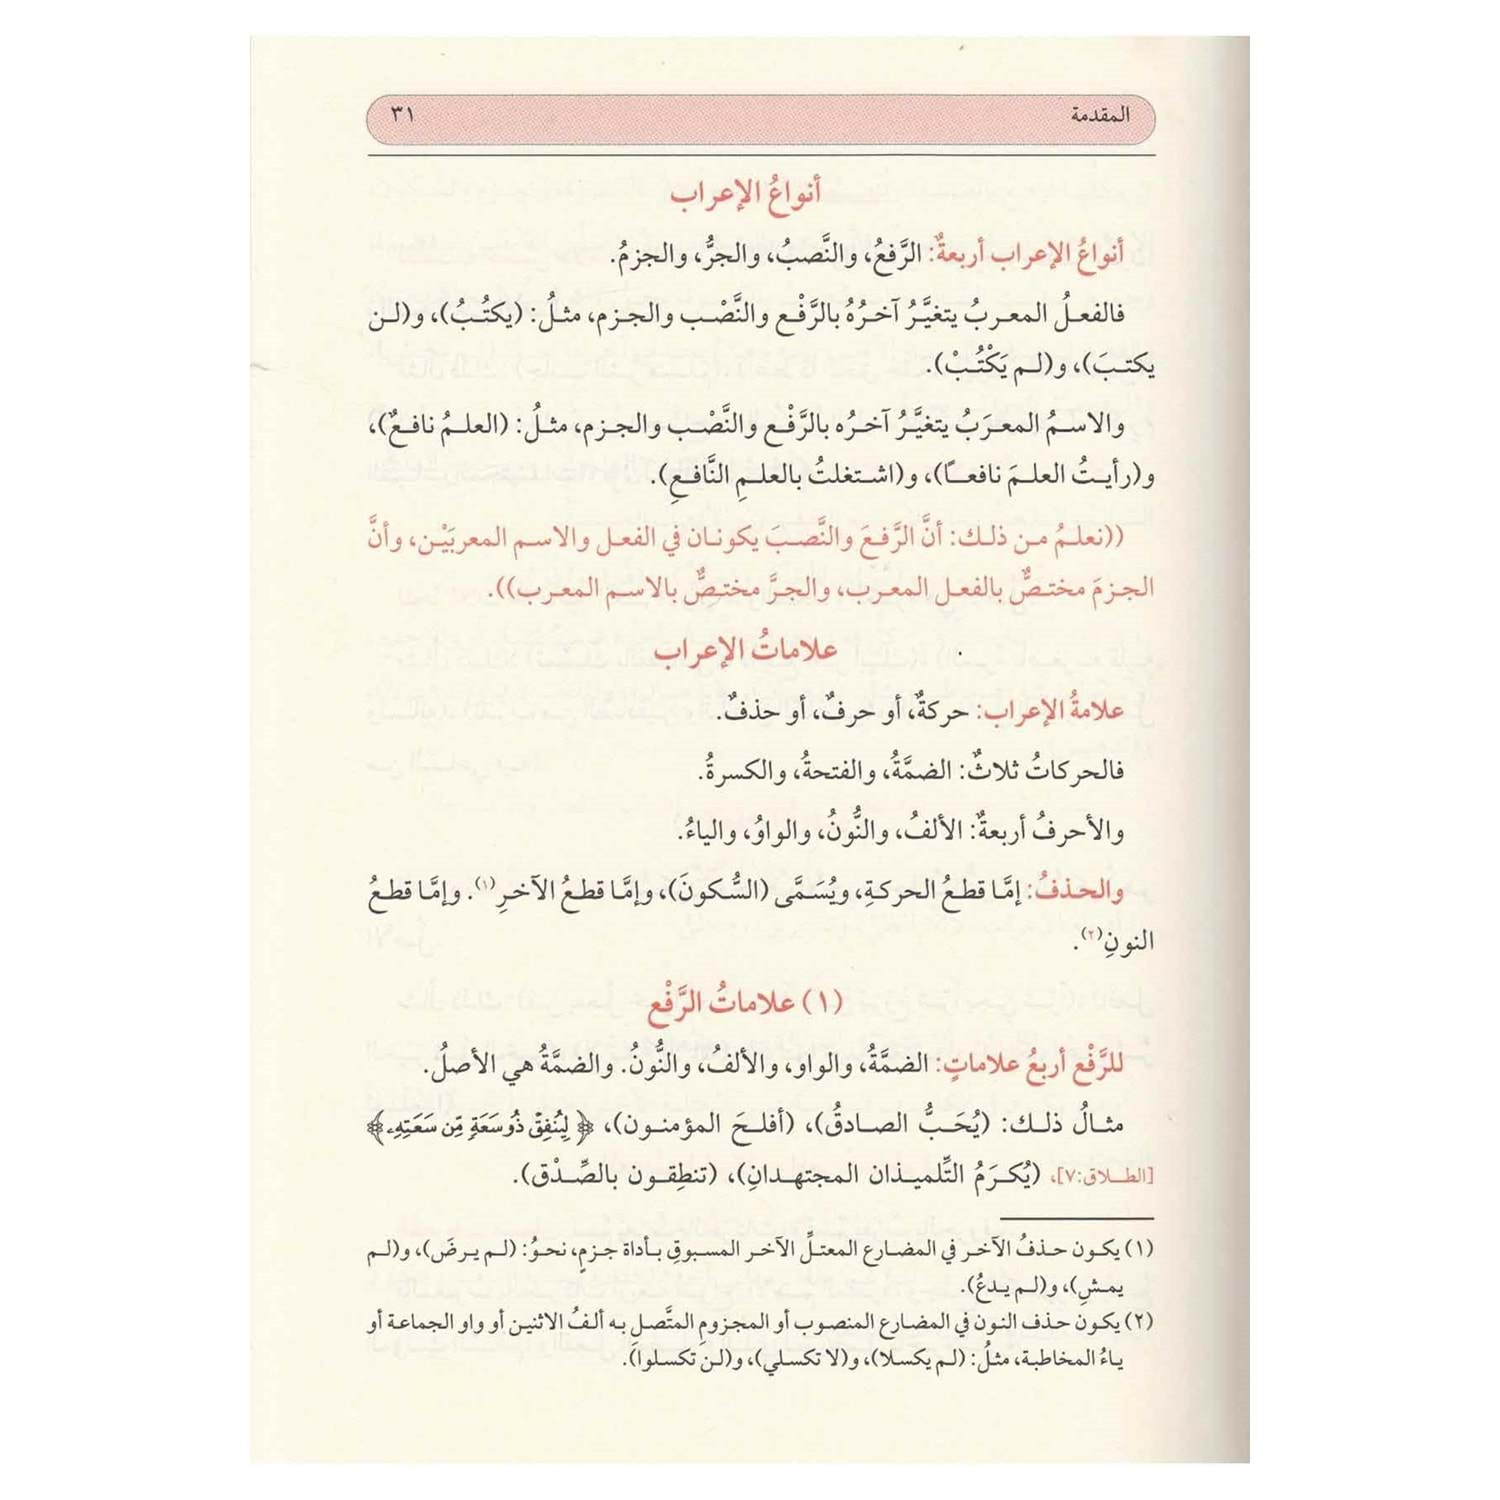 المقدمة ٣١
أنواعُ الإعراب
أنواعُ الإعراب أربعةٌ: الرَّفعُ، والنَّصبُ، والجرُّ، والجزمُ.
فالفعلُ المعربُ يتغيَّرُ آخرُهُ بالرَّفْع والنَّصْب والجزم، مثلُ: (يكتُبُ)، و(لن
يكتبَ)، و(لم يَكْتُبْ).
والاسمُ المعرَبُ يتغيَّرُ آخرُه بالرَّفْع والنَّصْب والجزم، مثلُ: (العلمُ نافعٌ)،
و(رأيتُ العلمَ نافعًا)، و(اشتغلتُ بالعلمِ النَّافعِ).
((نعلمُ من ذلك: أنَّ الرَّفعَ والنَّصبَ يكونان في الفعل والاسم المعربَيْن، وأنَّ
الجزمَ مختصٌّ بالفعل المعرب، والجرَّ مختصٌّ بالاسم المعرب)).
علاماتُ الإعراب
علامةُ الإعراب: حركةٌ، أو حرفٌ، أو حذفٌ.
فالحركاتُ ثلاثٌ: الضمَّةُ، والفتحةُ، والكسرةُ.
والأحرفُ أربعةٌ: الألفُ، والنُّونُ، والواوُ، والياءُ.
والحذفُ: إمَّا قطعُ الحركةِ، ويُسَمَّى (السُّكونَ)، وإمَّا قطعُ الآخرِ(١). وإمَّا قطعُ
النونِ(٢).
(١) علاماتُ الرَّفْع
للرَّفْع أربعُ علاماتٍ: الضمَّةُ، والواو، والألفُ، والنُّونُ. والضمَّةُ هي الأصلُ.
مثالُ ذلك: (يُحَبُّ الصادقُ)، (أفلحَ المؤمنون)، ﴿لِيُنفِقْ ذُو سَعَةٍ مِّن سَعَتِهِۦ﴾
[الطلاق:٧]، (يُكرَمُ التِّلميذان المجتهدانِ)، (تنطِقون بالصِّدْق).
(١) يكون حذفُ الآخر في المضارع المعتلِّ الآخر المسبوقِ بأداة جزمٍ، نحوُ: (لم يرضَ)، و(لم
يمشِ)، و(لم يدعُ).
(٢) يكون حذف النون في المضارع المنصوب أو المجزومِ المتَّصل به ألفُ الاثنين أو واو الجماعة أو
ياءُ المخاطبة، مثلُ: (لم يكسلا)، و(لا تكسلي)، و(لن تكسلوا).